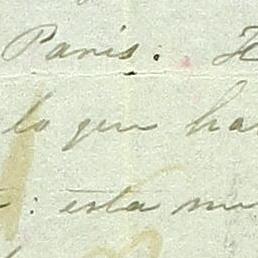 Paris.
lo que ha
: esta